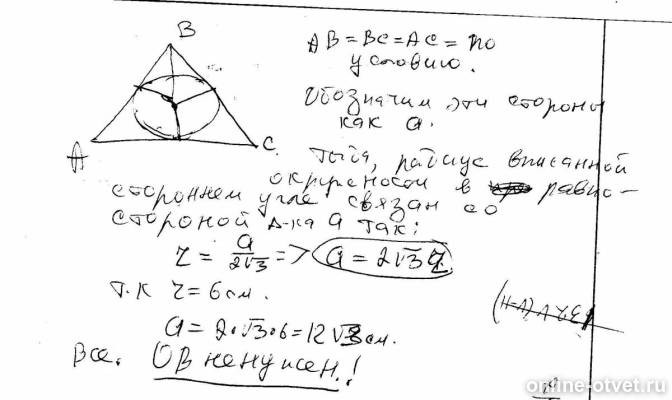 B
AB = BC = AC = по
условию.
Обозначим эти стороны
как a.
A
C.
Тогда, радиус вписанной
окружности в равно-
стороннем угле связан со
стороной Δ-ка a так:
r = a/2√3 => a = 2√3 r
Т.К r = 6 см.
a = 2•√3•6 = 12√3 см.
Все. OB не нужен!
online-otvet.ru